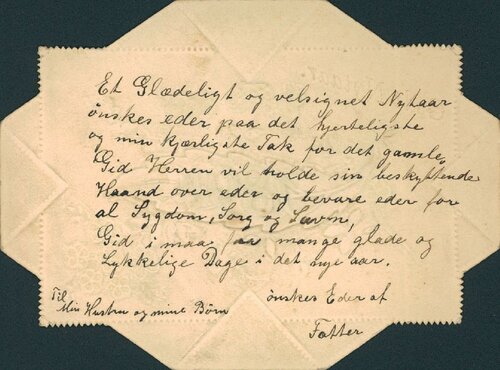 Et Glædeligt og velsignet Nytaar
ønskes eder paa det hjerteligste
og min kjærligste Tak for det gamle,
Gid Herren vil holde sin beskyttende
Haand over eder og bevare eder for
al Sygdom, Sorg og Savn,
Gid i maa faa mange glade og
Lykkelige Dage i det nye aar.
ønskes Eder af
Fatter
Til
Min Hustru og mine Børn